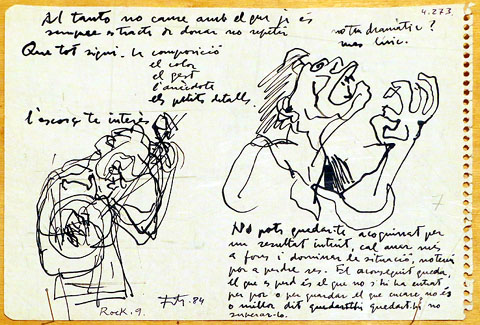 4.273.
Al tanto no caure amb el que ja és
sempre estracte de donar no repetir
Que tot sigui. la composició
el color
el gest
l'anècdota
els petits detalls.
nota dramàtic?
mes líric.
l'escorç te interès
7
No pots quedarte acoquinat per
un resultat intuit, cal anar més
a fons i dominar la situació, no tenir
por a perdre res. El aconseguit queda,
el que es perd és el que no s'hi ha entrat
per por o per guardar el que encare, no és
o millor dit quedarshi quedarshi no
superar-lo.
Rock. 9.
84